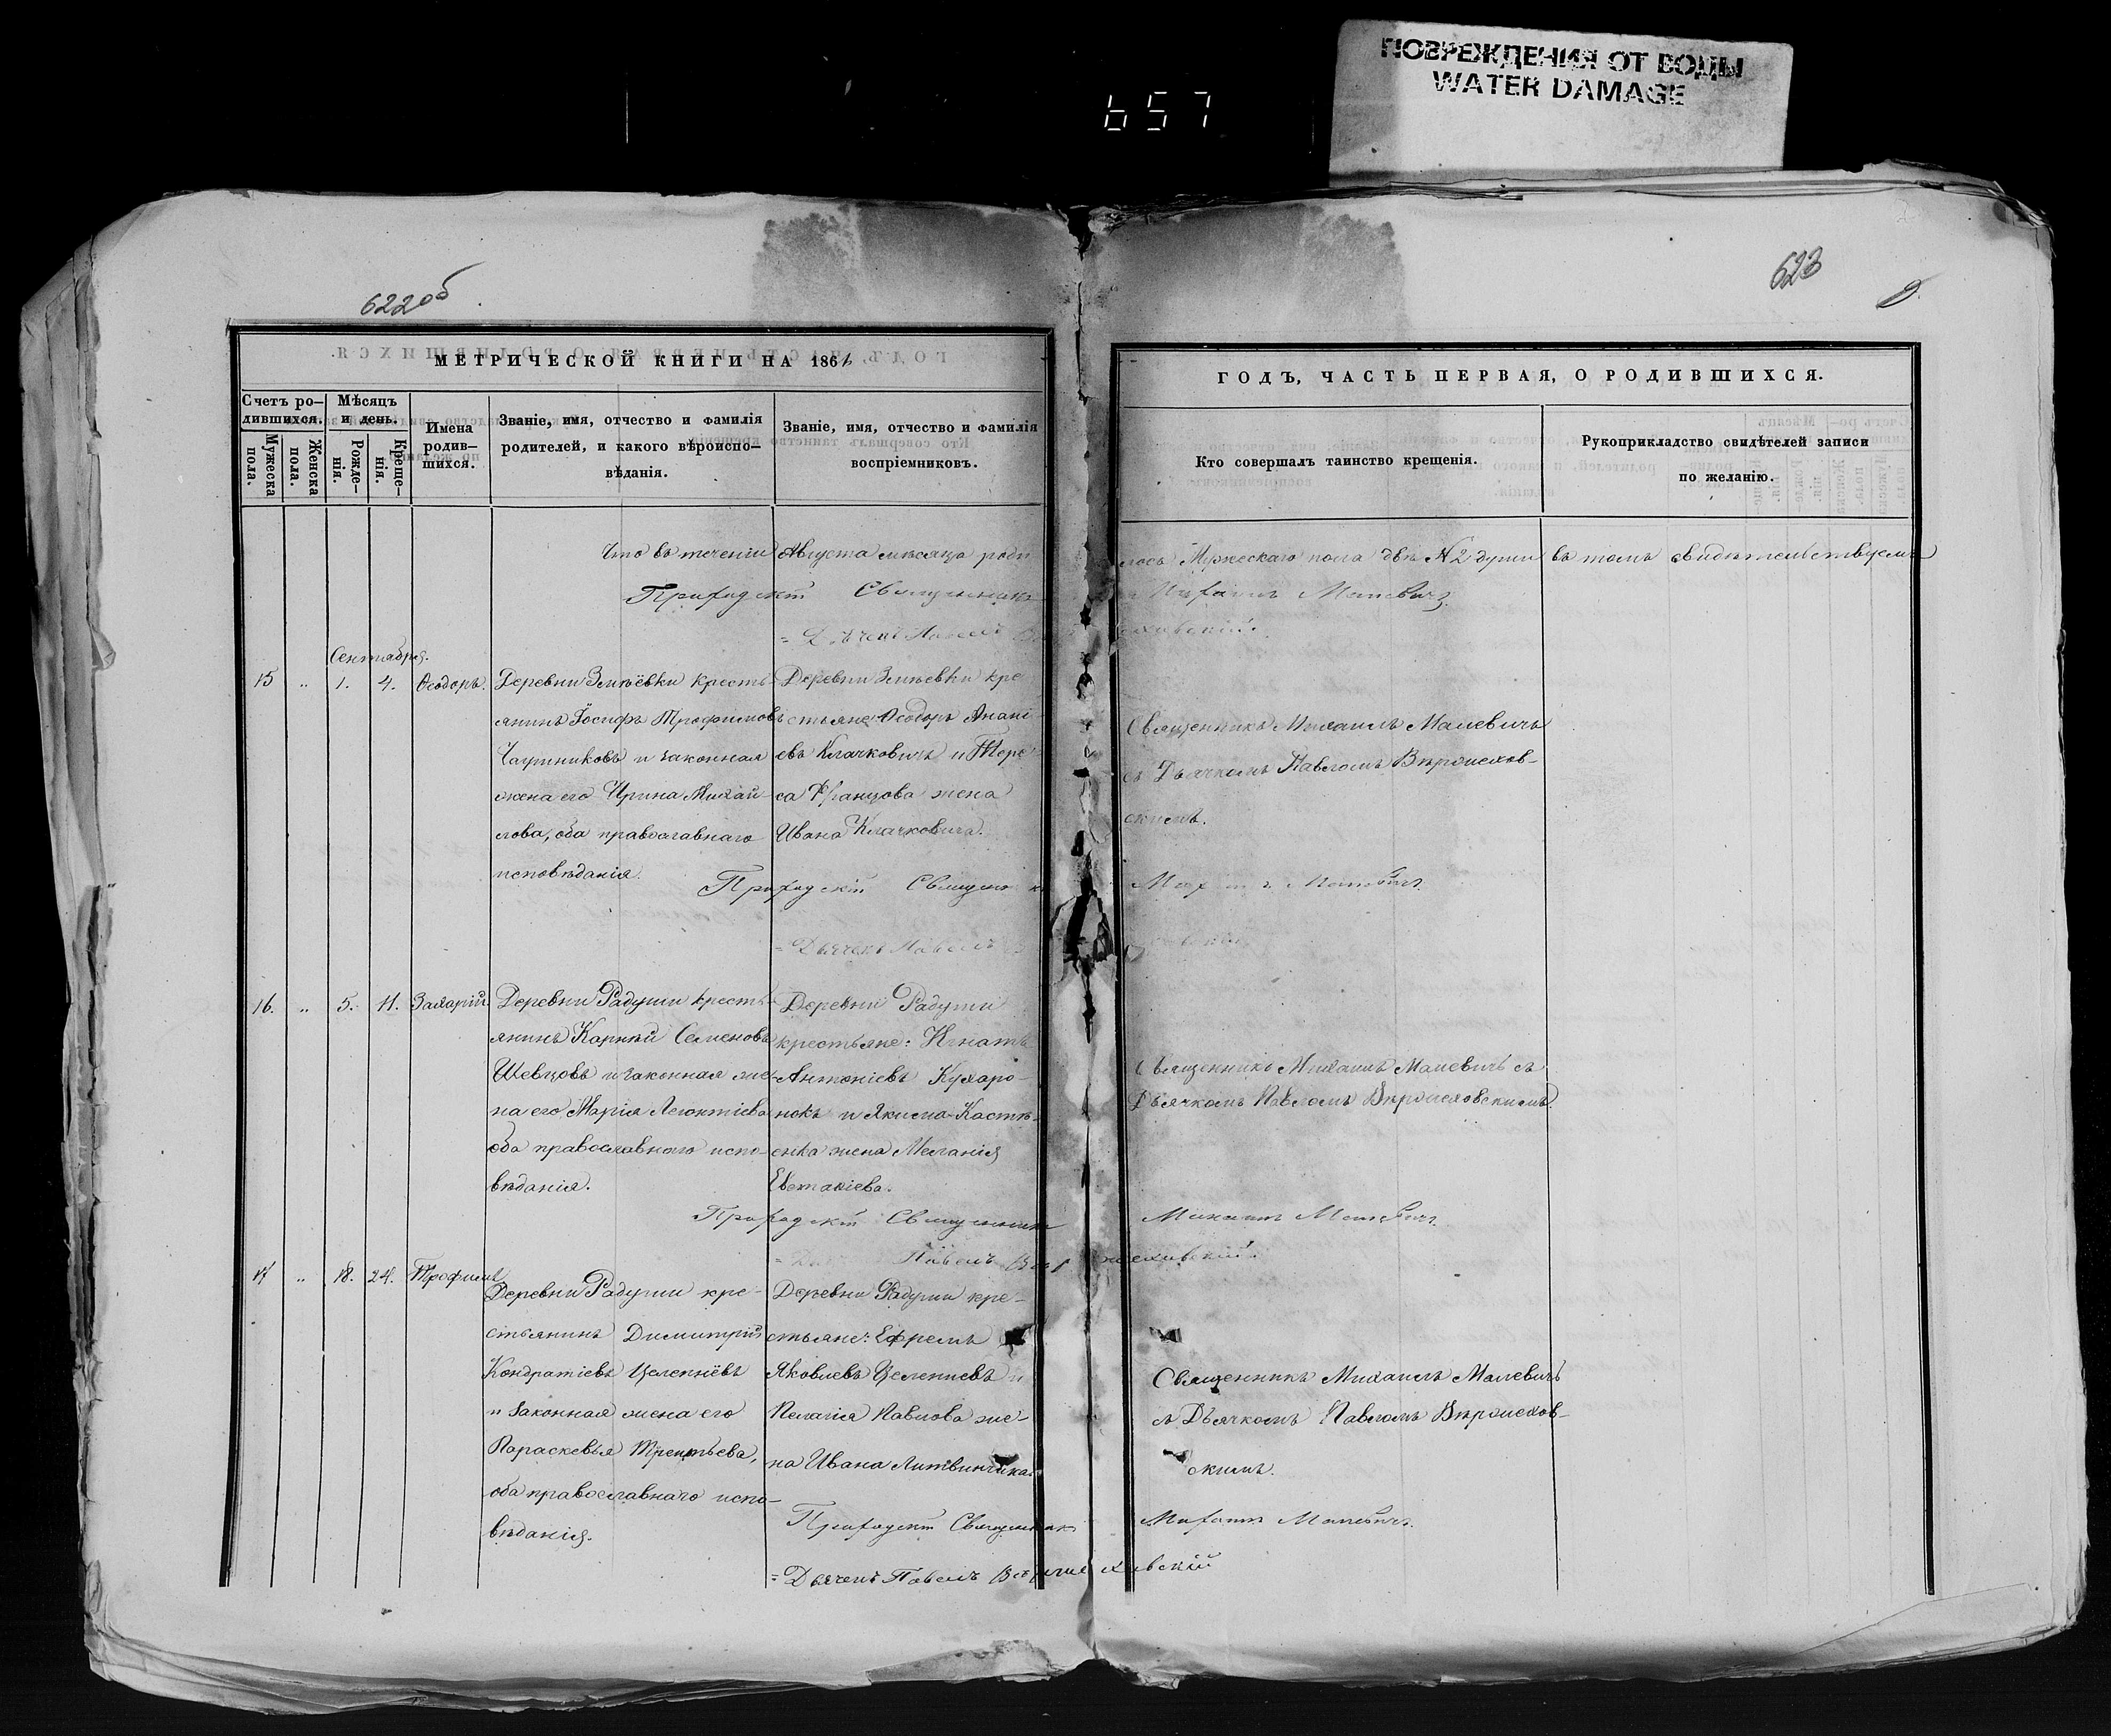 ПОВРЕЖДЕНИЯ ОТ ВОДЫ
WATER DAMAGE
657
622об
623
МЕТРИЧЕСКОЙ КНИГИ НА 186
ГОДЪ, ЧАСТЬ ПЕРВАЯ, О РОДИВШИХСЯ.
Счетъ ро–
дившихся.
Мужеска
пола.
Женска
пола.
Мѣсяцъ
и день.
Рожде–
нія.
Креще–
нія.
Имена
родив–
шихся.
Званіе, имя, отчество и фамилія
родителей, и какого вѣроиспо–
вѣданія.
Званіе, имя, отчество и фамилія
воспріемниковъ.
Кто совершалъ таинство крещенія.
Рукоприкладство свидѣтелей записи
по желанію.
Что въ теченіи Августа мѣсяца роди
лось Мужескаго пола двѣ №2 души въ томъ свидѣтельствуемъ
Священникъ
Михаилъ Малевичъ
Павелъ
Сентября.
15 „ 1. 4. Ѳеодоръ.
Деревни Змѣёвки кресть–
янинъ Іосифъ Трофимовъ
и законная
жена его Ирина Михай–
лова, оба православнаго
исповѣданія.
Деревни Змѣевки кре
стьяне: Ѳеодоръ Анані–
евъ Клачковичъ и Тере–
са Францова жена
Ивана Клачковича.
Священникъ Михаилъ Малевичъ
съ Дьячкомъ Павломъ
скимъ.
Священникъ
Малевичъ
Дьячекъ Павелъ
16. „ 5. 11. Захарій.
Деревни Радуши кресть–
янинъ Карпъ Семеновъ
Шевцовъ и законная же–
на его Марія Леонтіева
оба православнаго испо–
вѣданія.
Деревни Радуши
крестьяне: Игнатъ
Антоніевъ Кухаро–
нокъ и Якима
жена Меланія
Евстафіева.
Священникъ Михаилъ Малевичъ съ
Дьячкомъ Павломъ
Священникъ
Михаилъ Малевичъ
Павелъ
17 „ 18. 24. Трофимъ
Деревни Радуши кре–
стьянинъ Димитрій
Кондратіевъ Целепнёвъ
и законная жена его
Параскевья Терентьева,
оба православнаго испо–
вѣданія.
Деревни Радуши кре–
стьяне: Ефремъ
Яковлевъ Целепневъ и
Пелагія Павлова же–
на Ивана Литвинчика
Священникъ Михаилъ Малевичъ
съ Дьячкомъ Павломъ
скимъ.
Священникъ
Михаилъ Малевичъ
Дьячекъ Павелъ